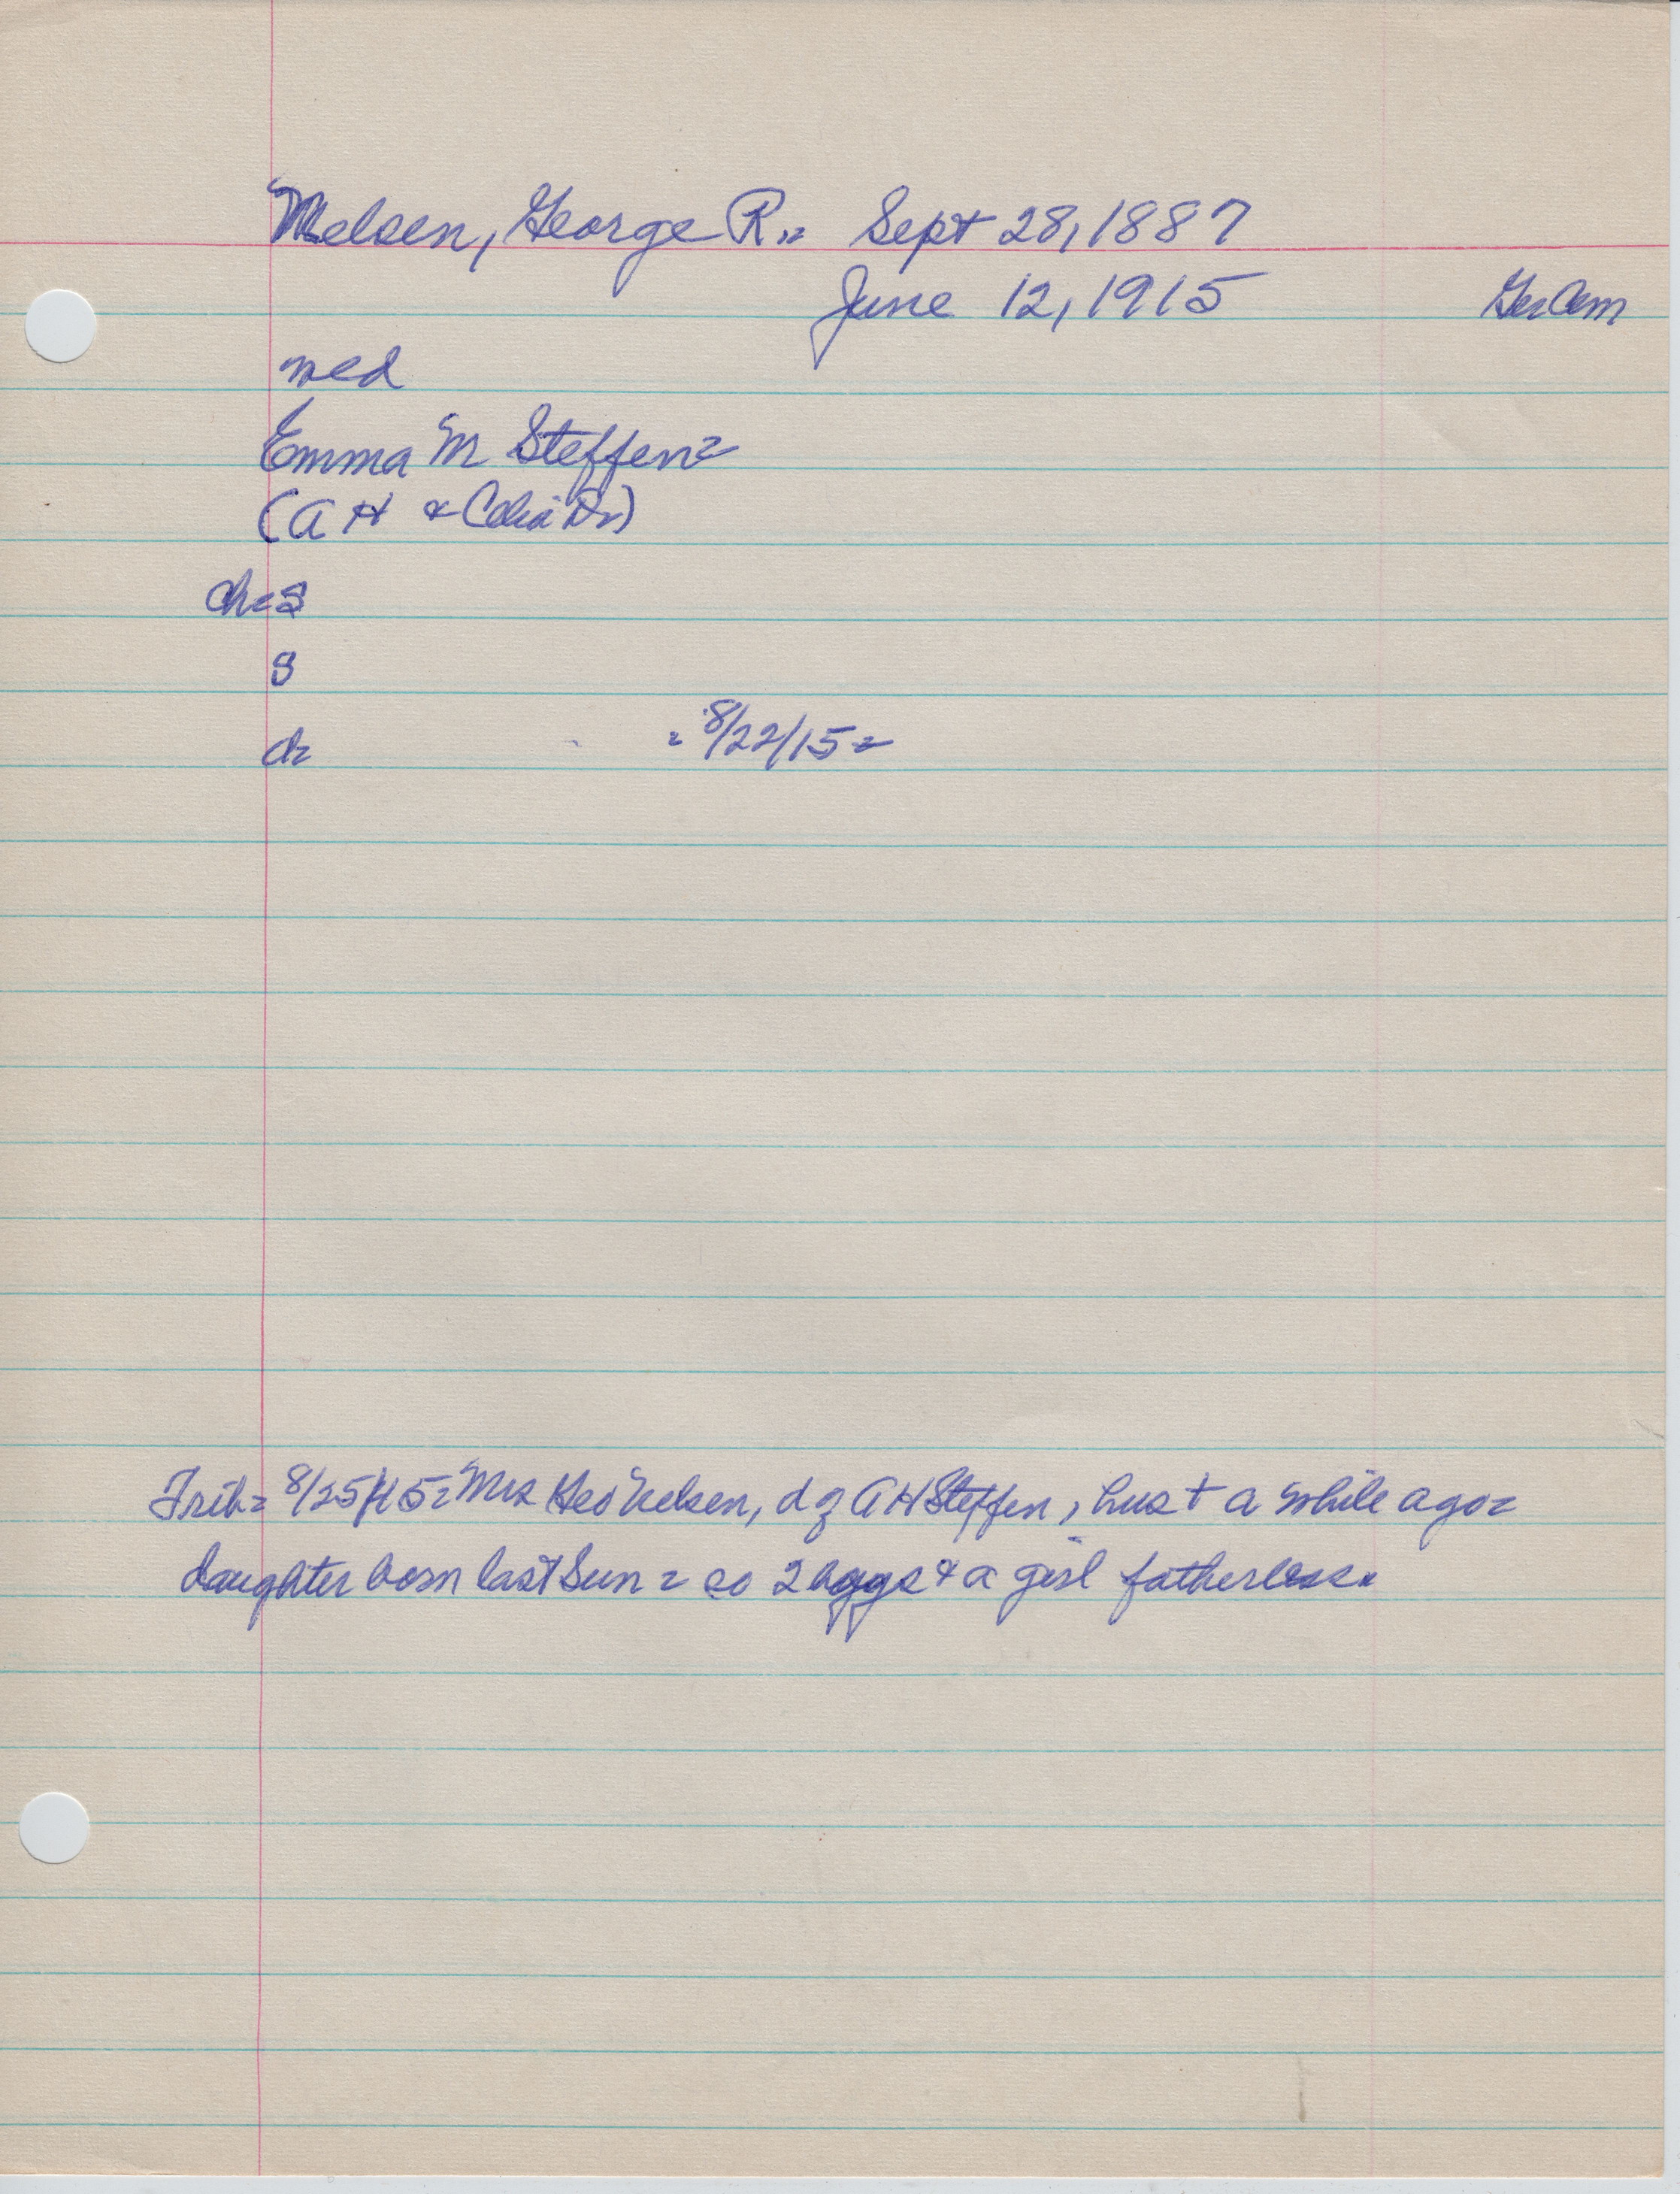 Nelsen, George R.= Sept 28, 1887
June 12, 1915 Ger Cem
med
Emma M Steffen=
(A H & Celia )
ch= s
s
d= = 8/22/15=
Trib= 8/25/15= Mrs Geo Nelsen, d of A H Steffen, hus + a while ago=
daughter born last Sun= so 2 boys & a girl fatherless.